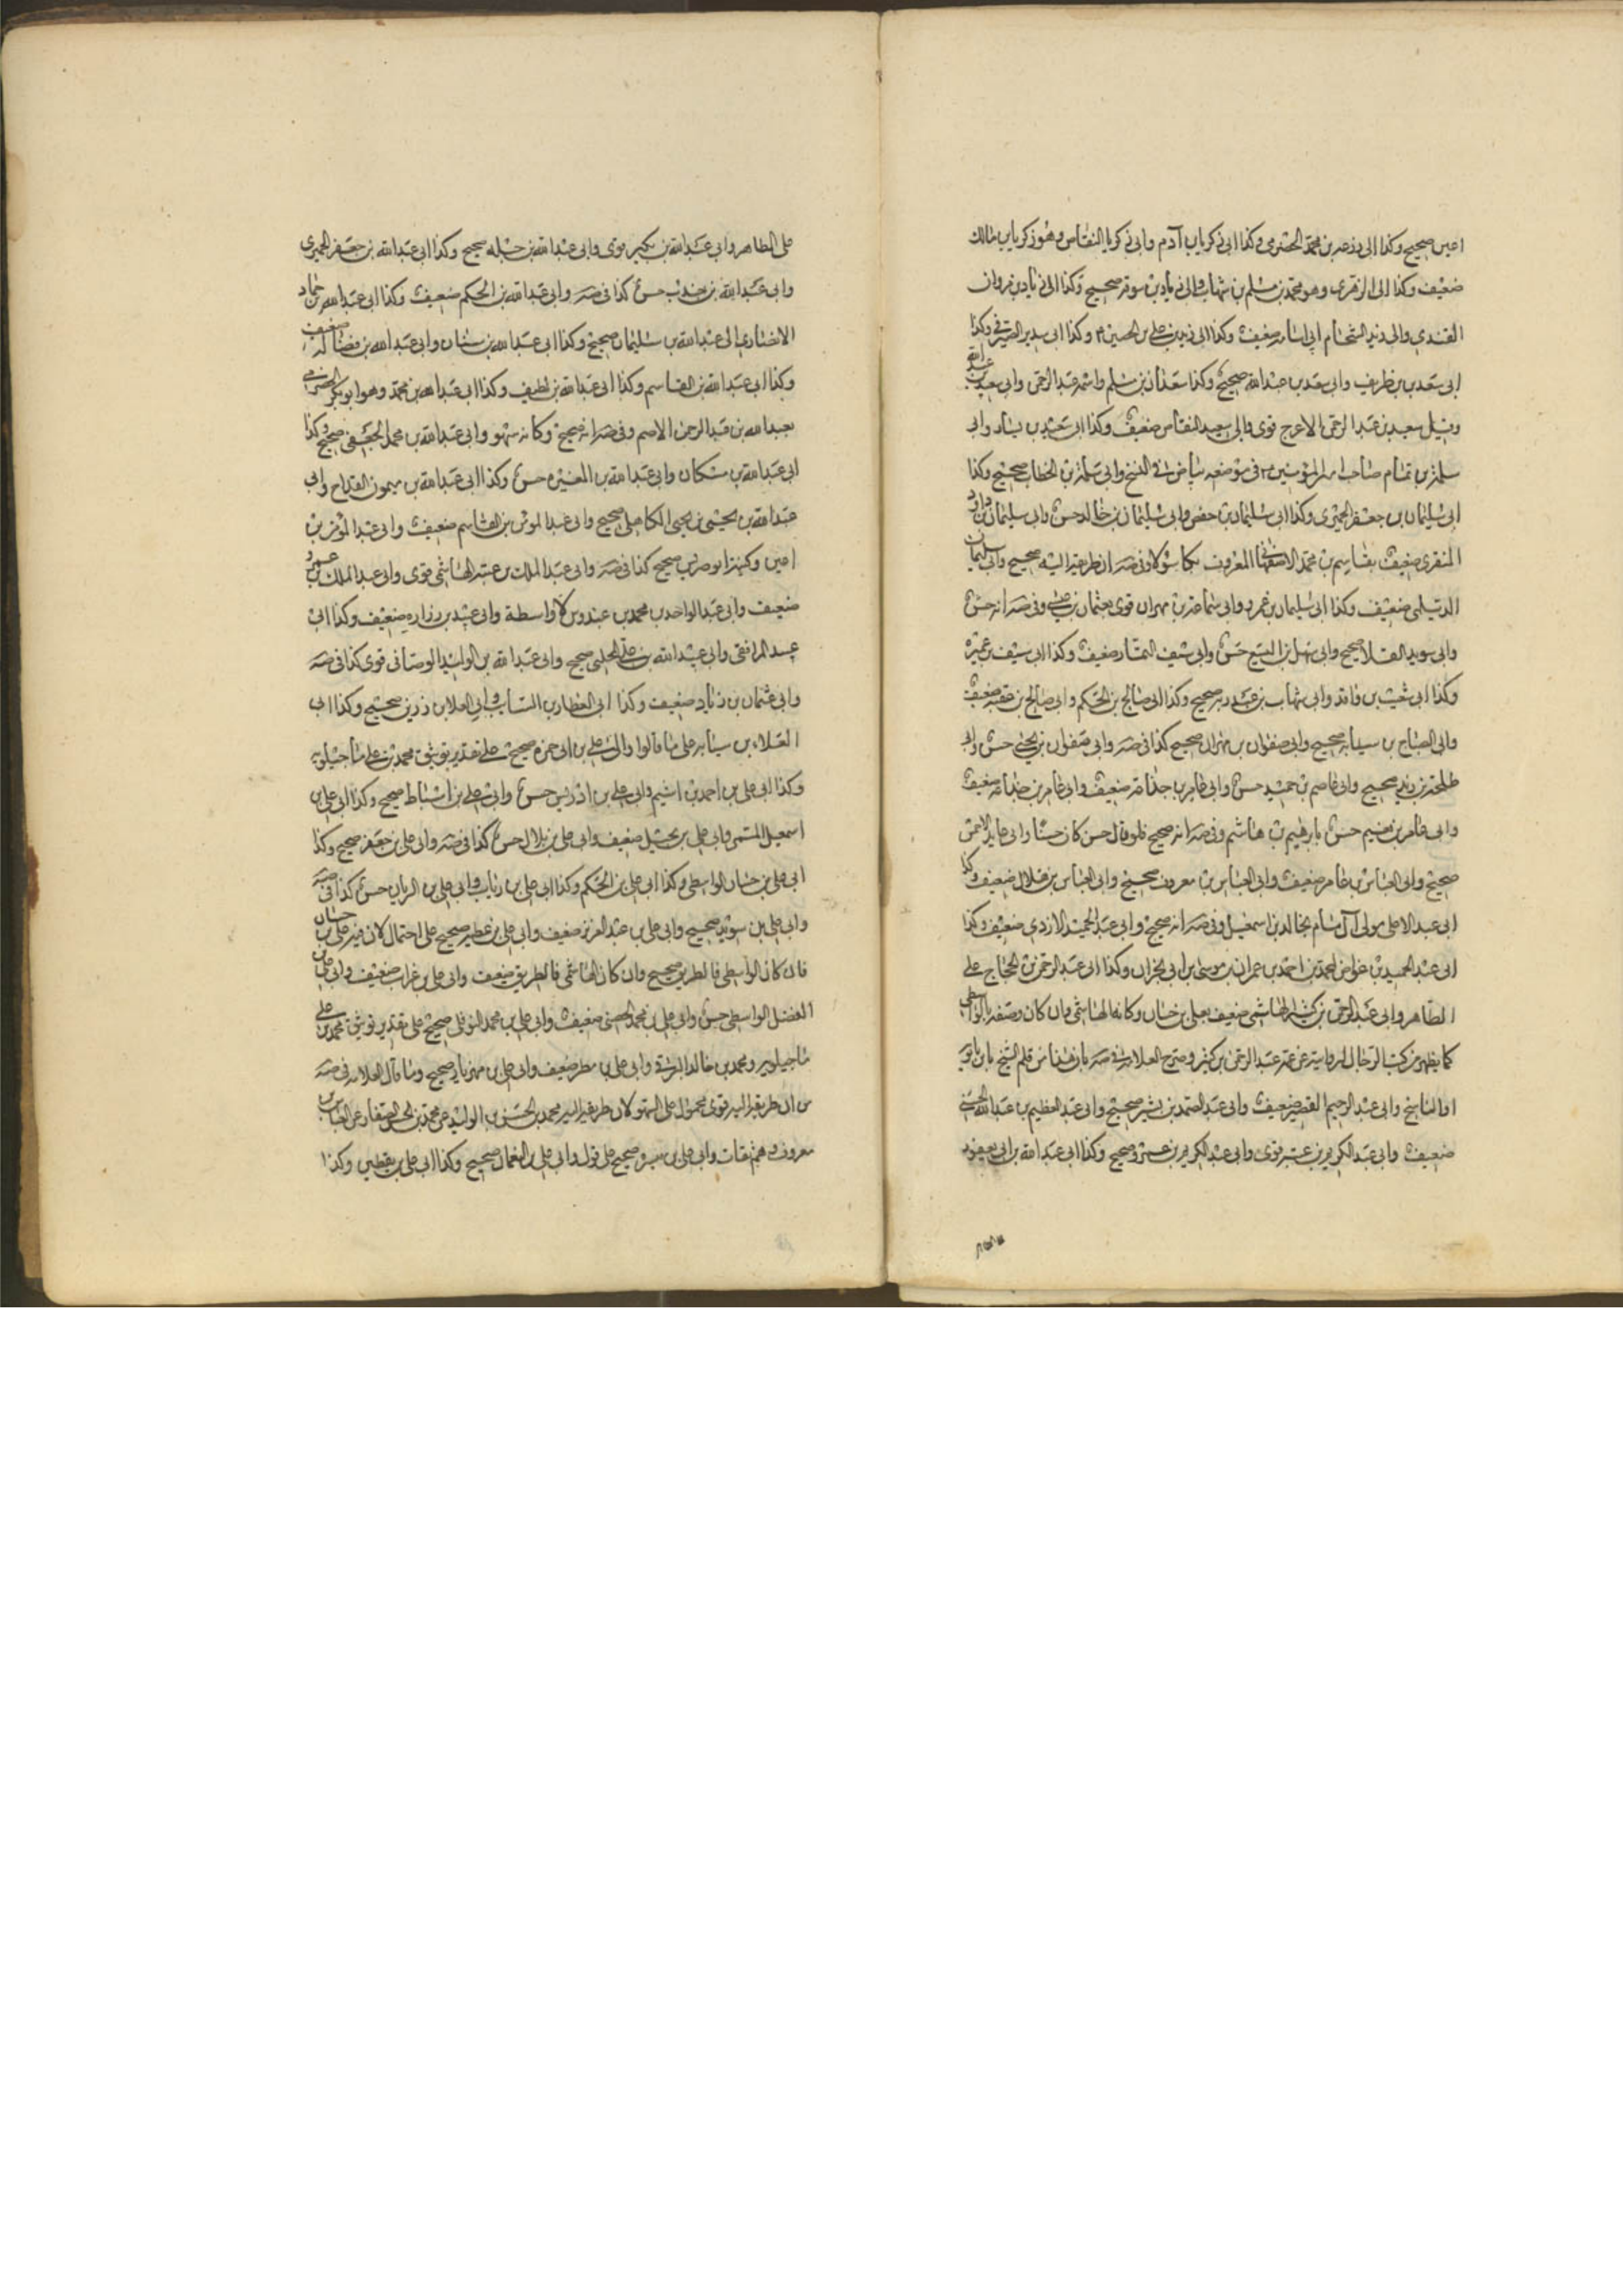 امين صحيح وكذا الى زرعه بن محمد الحضرمى وكذا الى زكريا بن آدم والى زكريا النقاض وهو زكريا بن مالك
ضعيف وكذا الى الزهرى وهو محمد بن مسلم بن شهاب والى زياد بن سوقه صحيح وكذا الى زياد بن مروان
القندى والى زيد الشحام ابى اسامه ضعيف وكذا الى زيد بن على بن الحسين ع وكذا الى سدير الصيرفى وكذا
الى سعد بن طريف والى سعد بن عبد الله صحيح وكذا سعدان بن مسلم واسمه عبد الرحمن والى سعيد بن عبد الله
وقيل سعيد بن عبد الرحمن الاعرج قوى والى سعيد النقاش ضعيف وكذا الى سعيد بن يسار والى
سلمه بن تمام صاحب امير المؤمنين ع فى موضعه بياض فى النسخ والى سلمه بن الخطاب صحيح وكذا
الى سليمان بن جعفر الجعفرى وكذا الى سليمان بن حفص والى سليمان بن خالد حسن والى سليمان بن داود
المنقرى ضعيف بقاسم بن محمد الاصفهانى المعروف بكاسولا وفى صه ان طريقه اليه صحيح والى سليمان
الديلمى ضعيف وكذا الى سليمان بن عمرو والى سماعه بن مهران قوى بعثمان بن عيسى وفى صه انه حسن
والى سويد القلا صحيح والى سهل بن اليسع حسن والى سيف التمار ضعيف وكذا الى سيف بن عميره
وكذا الى شعيب بن واقد والى شهاب بن عبد ربه صحيح وكذا الى صالح بن الحكم والى صالح بن عقبه ضعيف
والى الصباح بن سيابه صحيح والى صفوان بن مهران صحيح كذا فى صه والى صفوان بن يحيى حسن والى
طلحه بن زيد صحيح والى عاصم بن حميد حسن والى عامر بن جذاعه ضعيف والى عامر بن جذاعه ضعيف
والى عامر بن نعيم حسن بابرهيم بن هاشم وفى صه انه صحيح فلو قال حسن كان حسنا والى عايذ الاحمسى
صحيح والى العباس بن عامر ضعيف والى العباس بن معروف صحيح والى العباس بن هلال ضعيف وكذا
الى عبد الاعلى مولى آل سام بخالد بن اسمعيل وفى صه انه صحيح والى عبد الحميد الازدى ضعيف وكذا
الى عبد الحميد بن عواض لمحمد بن احمد بن عمران بن موسى بن ابى الجزان وكذا الى عبد الرحمن بن الحجاج على
الظاهر والى عبد الرحمن بن كثير الهاشمى ضعيف بعلى بن حسان وكانه الهاشمى وان كان وصفه بالواسطى
كما يظهر من كتب الرجال لروايته عن عمه عبد الرحمن بن كثير وصرح العلامه فى صه بان هنا من قلم الشيخ بابن بابويه
او الناسخ والى عبد الرحيم القصير ضعيف والى عبد الصمد بن بشير صحيح والى عبد العظيم بن عبد الله الحسنى
ضعيف والى عبد الكريم بن عتبه قوى والى عبد الكريم بن عمرو صحيح وكذا الى عبد الله بن ابى يعفور
على الظاهر والى عبد الله بن بكير قوى والى عبد الله بن جبله صحيح وكذا الى عبد الله بن جعفر الحميرى
والى عبد الله بن جندب حسن كذا فى صه والى عبد الله بن الحكم ضعيف وكذا الى عبد الله بن حماد
الانصارى الى عبد الله بن سليمان صحيح وكذا الى عبد الله بن سنان والى عبد الله بن فضاله ضعيف
وكذا الى عبد الله بن القاسم وكذا الى عبد الله بن لطيف وكذا الى عبد الله بن محمد وهو ابو بكر الحضرمى
بعبد الله بن عبد الرحمن الاصم وفى صه انه صحيح وكانه سهو والى عبد الله بن محمد الجعفى صحيح وكذا
الى عبد الله بن مسكان والى عبد الله بن المغيره حسن وكذا الى عبد الله بن ميمون القداح والى
عبد الله بن يحيى بن يحيى الكاهلى صحيح والى عبد المومن بن القاسم ضعيف والى عبد المومن بن
امين وكنيته ابو مريم صحيح كذا فى صه والى عبد الملك بن عتبه الهاشمى قوى والى عبد الملك بن عمرو
ضعيف والى عبد الواحد بن محمد بن عبدوس لا واسطة والى عبيد بن زراره ضعيف وكذا الى
عبيد المرافقى والى عبيد الله بن على الحلبى صحيح والى عبد الله بن الوليد الوصافى قوى كذا فى صه
والى عثمان بن زياد ضعيف وكذا الى العطار بن السايب والى العلا بن رزين صحيح وكذا الى
العلاء بن سيابه على ما قالوا والى على بن ابى حمزه صحيح على تقدير توثيق محمد بن على ماجيلويه
وكذا الى على بن احمد بن اشيم والى على بن ادريس حسن والى على بن اسباط صحيح وكذا الى على بن
اسمعيل الميثمى والى على بن بجيل ضعيف والى على بن بلال حسن كذا فى صه والى على بن جعفر صحيح وكذا
الى على بن حسان الواسطى وكذا الى على بن الحكم وكذا الى على بن رئاب والى على بن الريان حسن كذا فى صه
والى على بن سويد صحيح والى على بن عبد العزيز ضعيف والى على بن عطيه صحيح على احتمال لان فيه على بن حسان
فان كان الواسطى فالطريق صحيح وان كان الهاشمى فالطريق ضعيف والى على بن غراب ضعيف والى على بن
الفضل الواسطى حسن والى على بن محمد الحصينى ضعيف والى على بن محمد النوفلى صحيح على تقدير توثيق محمد بن على
ماجيلويه ومحمد بن خالد البرقى والى على بن مطر ضعيف والى على بن مهزيار صحيح وما قال العلامه فى صه
من ان طريقه اليه قوى محمول على السهو لان طريقه اليه محمد بن الحسن بن الوليد عن محمد بن الحسن الصفار عن العباس بن
معروف وهم ثقات والى على بن ميسره صحيح على قول والى على بن النعمان صحيح وكذا الى على بن يقطين وكذا